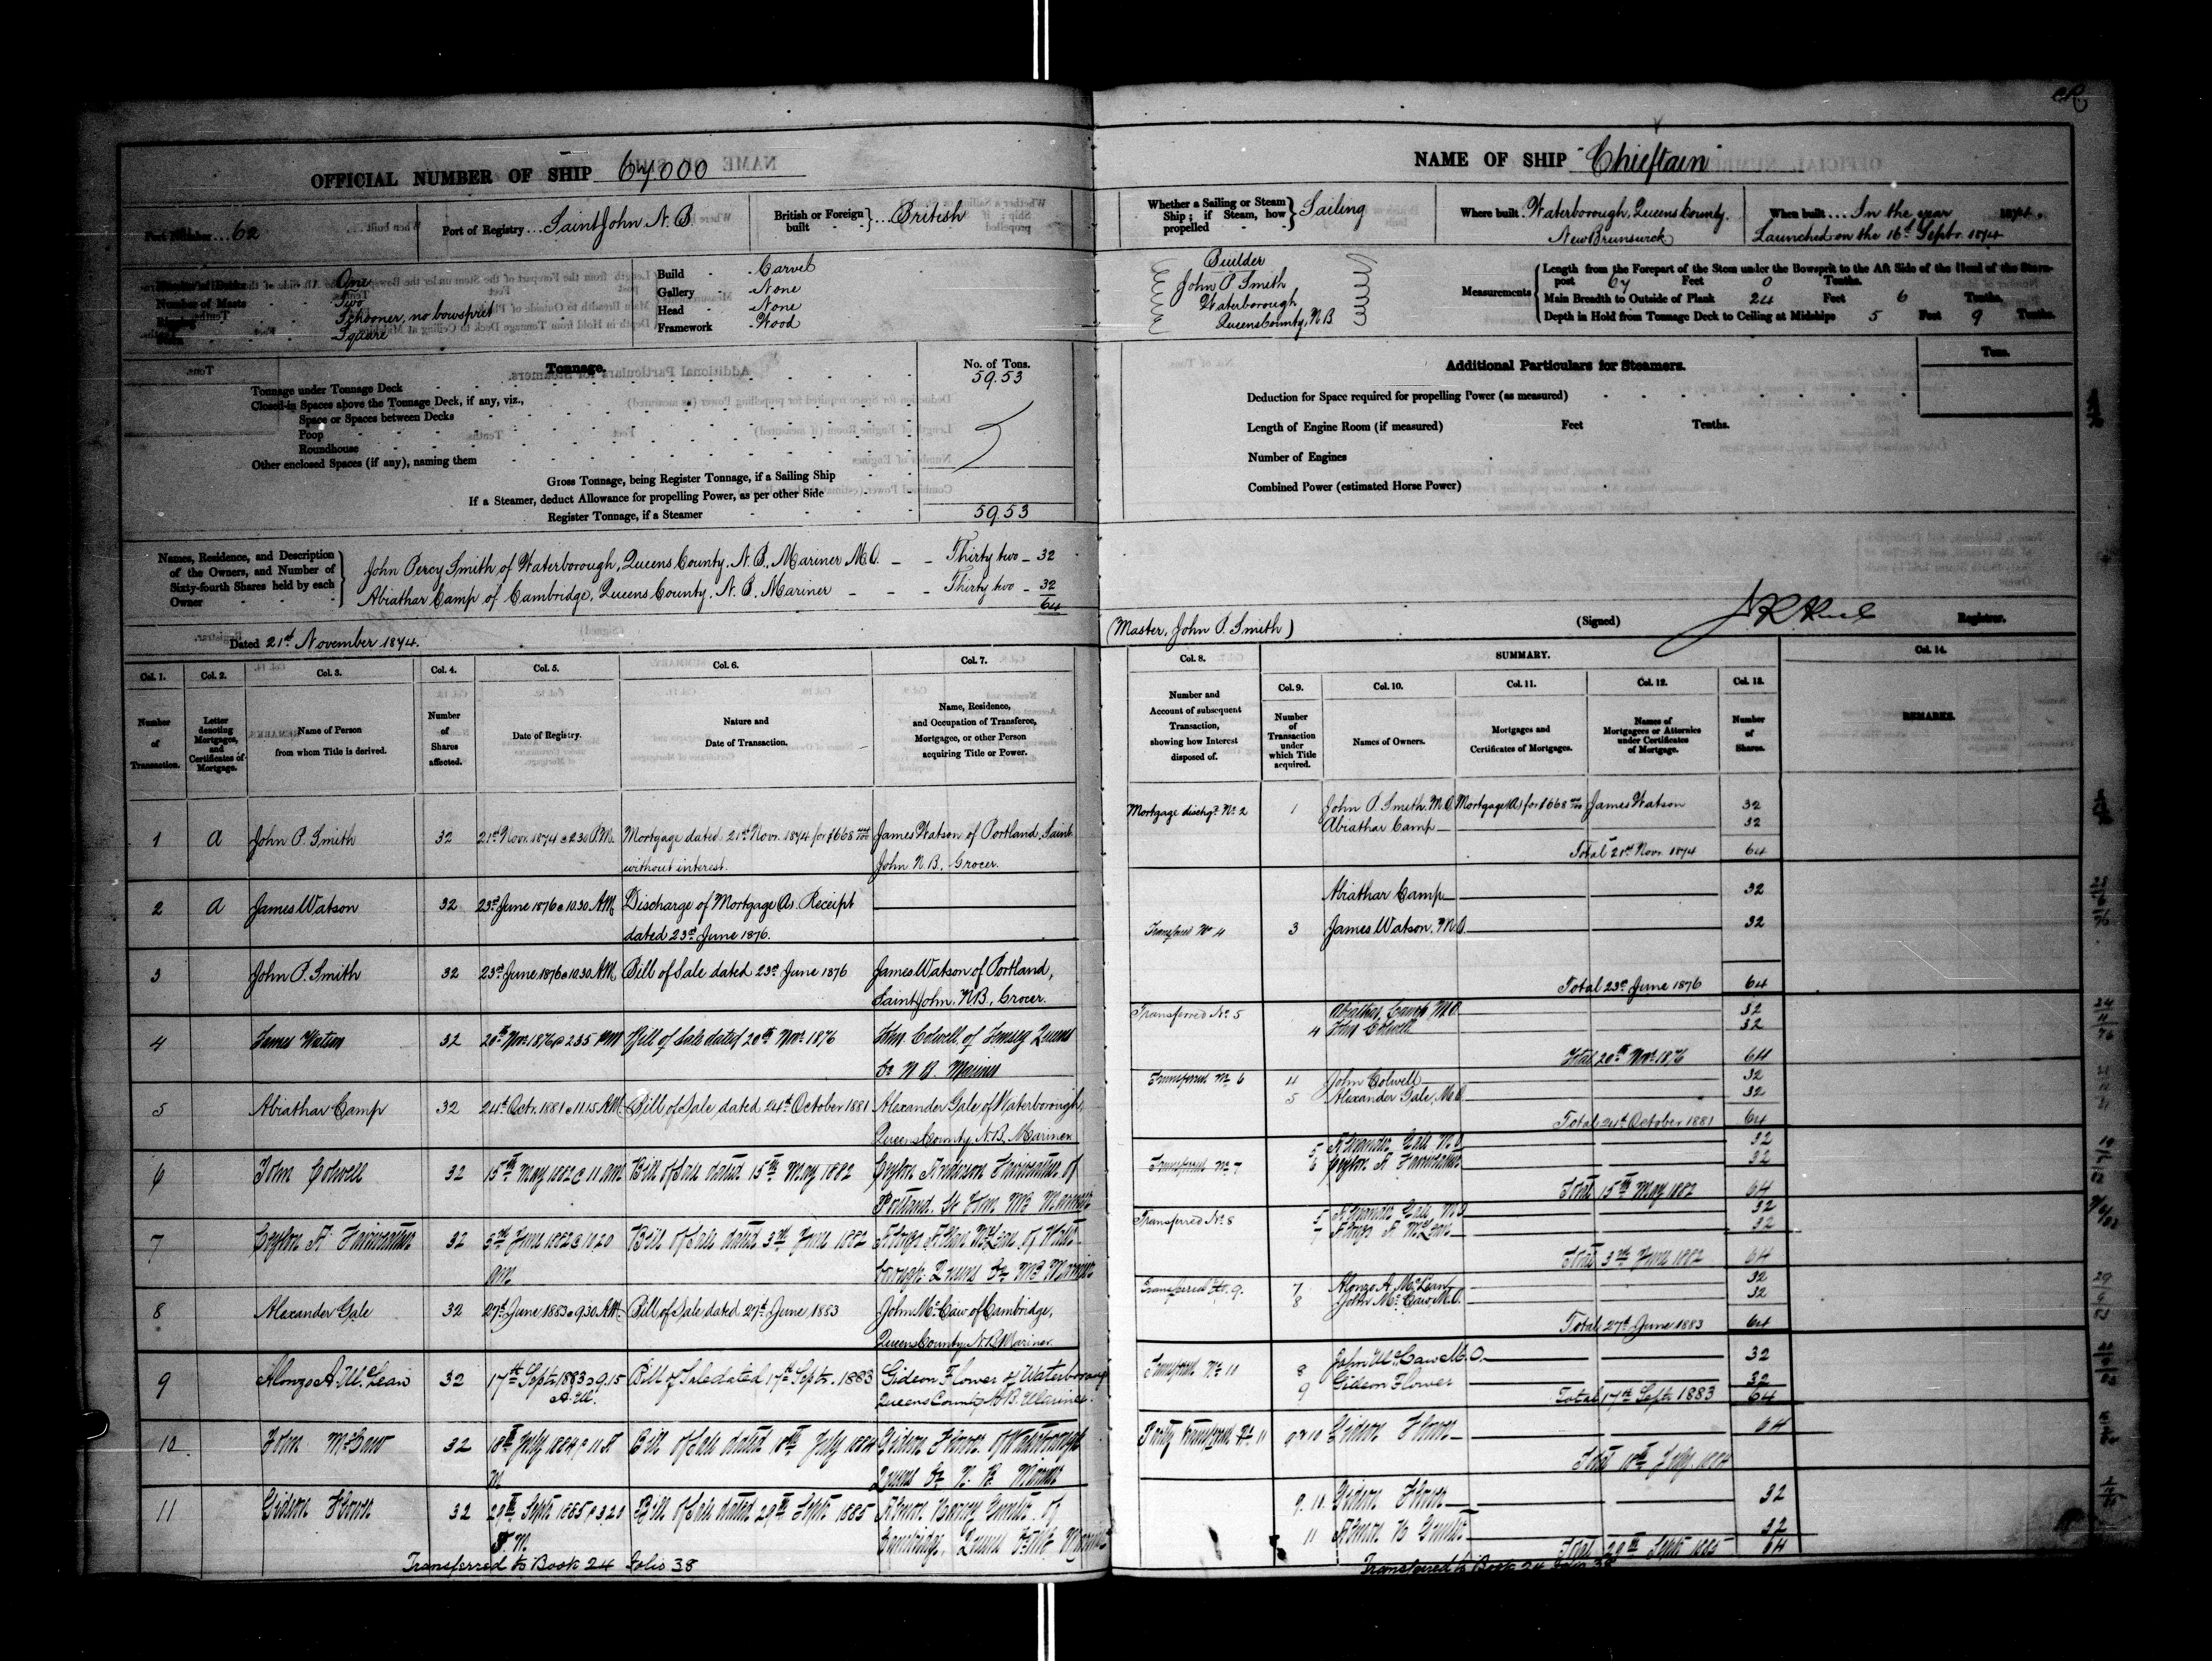 OFFICIAL NUMBER OF SHIP 67,000
Port Number ... 62
Port of Registry ... Saint John N.B.
British or Foreign built } ... British
Number of Decks One
Number of Masts Two
Rigging Schooner, no bowsprit
Stern Square
Build Carvel
Gallery None
Head None
Framework Wood
Tonnage.
No. of Tons.
Tonnage under Tonnage Deck 59.53
Closed-in Spaces above the Tonnage Deck, if any, viz.,
Space or Spaces between Decks
Poop
Roundhouse
Other enclosed Spaces (if any), naming them
Gross Tonnage, being Register Tonnage, if a Sailing Ship
If a Steamer, deduct Allowance for propelling Power, as per other Side
Register Tonnage, if a Steamer 59.53
Names, Residence, and Description of the Owners, and Number of Sixty-fourth Shares held by each Owner
John Percy Smith of Waterborough, Queens County, N.B., Mariner M.O. Thirty two 32
Abiathar Camp of Cambridge, Queens County, N.B. Mariner Thirty two 32
64
Dated 21st November 1874.
Col. 1. Col. 2. Col. 3. Col. 4. Col. 5. Col. 6. Col. 7.
Number of Transaction.
Letter denoting Mortgages, and Certificates of Mortgage.
Name of Person from whom Title is derived.
Number of Shares affected.
Date of Registry.
Nature and Date of Transaction.
Name, Residence, and Occupation of Transferee, Mortgagee, or other Person acquiring Title or Power.
1 A John P. Smith 32 21st Novr. 1874 @ 2.30 P.M. Mortgage dated 21st Novr. 1874 for $668 James Watson of Portland, Saint
without interest. John N.B., Grocer.
2 A James Watson 32 23rd June 1876 @ 10.30 A.M. Discharge of Mortgage A. Receipt
dated 23rd June 1876.
3 John P. Smith 32 23rd June 1876 @ 10.30 A.M. Bill of Sale dated 23rd June 1876 James Watson of Portland,
Saint John, N.B., Grocer.
4 James Watson 32 20th Novr. 1876 @ 2.35 PM Bill of Sale dated 20th Novr. 1876 John Colwell of Jemseg Queens
Co N B. Mariner
5 Abiathar Camp 32 24th Octr. 1881 @ 11.15 A.M. Bill of Sale dated 24th October 1881 Alexander Gale of Waterborough,
Queens County, N.B. Mariner
6 John Colwell 32 15th May 1882 @ 11 am Bill of Sale dated 15th May 1882 Ceylon Anderson Fairweather of
Portland. St John NB Mariner
7 Ceylon A. Fairweather 32 3rd June 1882 @ 10.20 Bill of Sale dated 3rd June 1882 Alonzo Allan McLean of Water-
am borough Queens Co NB Mariner
8 Alexander Gale 32 27th June 1883 @ 9.30 A.M. Bill of Sale dated 27th June 1883 John McCaw of Cambridge,
Queens County, N.B. Mariner.
9 Alonzo A. McLean 32 17th Sept. 1883 @ 9.15 Bill of Sale dated 17th Sept. 1883 Gideon Flower of Waterborough
A.M. Queens County N.B. Mariner.
10 John McCaw 32 18th July 1884 @ 11 A Bill of Sale dated 18th July 1884 Gideon Flower of Waterborough
M Queens Co N. B. Mariner
11 Gideon Flower 32 29th Sept 1885 @ 3.20 Bill of Sale dated 29th Sept 1885
P.M. Cambridge, Queens Co NB Mariner
Transferred to Book 24 folio 38
NAME OF SHIP "Chieftain"
Whether a Sailing or Steam Ship; if Steam, how propelled } Sailing
Where built. Waterborough, Queens County, New Brunswick
When built ... In the year 1874.
Launched on the 16th Septr. 1874
Builder
John P Smith
Waterborough
Queens County, N B
Measurements
Length from the Forepart of the Stem under the Bowsprit to the Aft Side of the Head of the Stern-post 67 Feet 0 Tenths.
Main Breadth to Outside of Plank 24 Feet 6 Tenths.
Depth in Hold from Tonnage Deck to Ceiling at Midships 5 Feet 9 Tenths.
Additional Particulars for Steamers.
Tons.
Deduction for Space required for propelling Power (as measured)
Length of Engine Room (if measured) Feet Tenths.
Number of Engines
Combined Power (estimated Horse Power)
(Master, John P. Smith)
(Signed) Registrar.
Col. 8. SUMMARY. Col. 14.
Col. 9. Col. 10. Col. 11. Col. 12. Col. 13.
Number and Account of subsequent Transaction, showing how Interest disposed of.
Number of Transaction under which Title acquired.
Names of Owners.
Mortgages and Certificates of Mortgages.
Names of Mortgagees or Attornies under Certificates of Mortgage.
Number of Shares.
REMARKS.
Mortgage dischgd. No. 2 1 John P. Smith. M.O. Mortgage (A) for $668 James Watson 32
Abiathar Camp 32
Total 21st Novr. 1874 64
Abiathar Camp 32
Transferred No 4 3 James Watson. M.O. 32
Total 23rd June 1876 64
Transferred No. 5 Abiathar Camp M.O. 32
4 John Colwell 32
Total 20th Novr. 1876 64
Transferred No 6 4 John Colwell 32
5 Alexander Gale, M.O. 32
Total 24th October 1881 64
5 Alexander Gale M.O 32
Transferred No 7 6 Ceylon A Fairweather 32
Total 15th May 1882 64
Transferred No. 8 5 Alexander Gale M.O 32
7 Alonzo A McLean 32
Total 3rd June 1882 64
Transferred No. 9. 7 Alonzo A. McLean 32
8 John McCaw, M.O. 32
Total 27th June 1883 64
Transferred No 10 8 John McCaw M.O. 32
9 Gideon Flower 32
Total 17th Sept. 1883 64
Partly transferred No 11 9 & 10 Gideon Flower 64
Total 18th July 1884
9. 10. Gideon Flower 32
11 32
Total 29th Sept 1885 64
Transferred to Book 24 folio 38